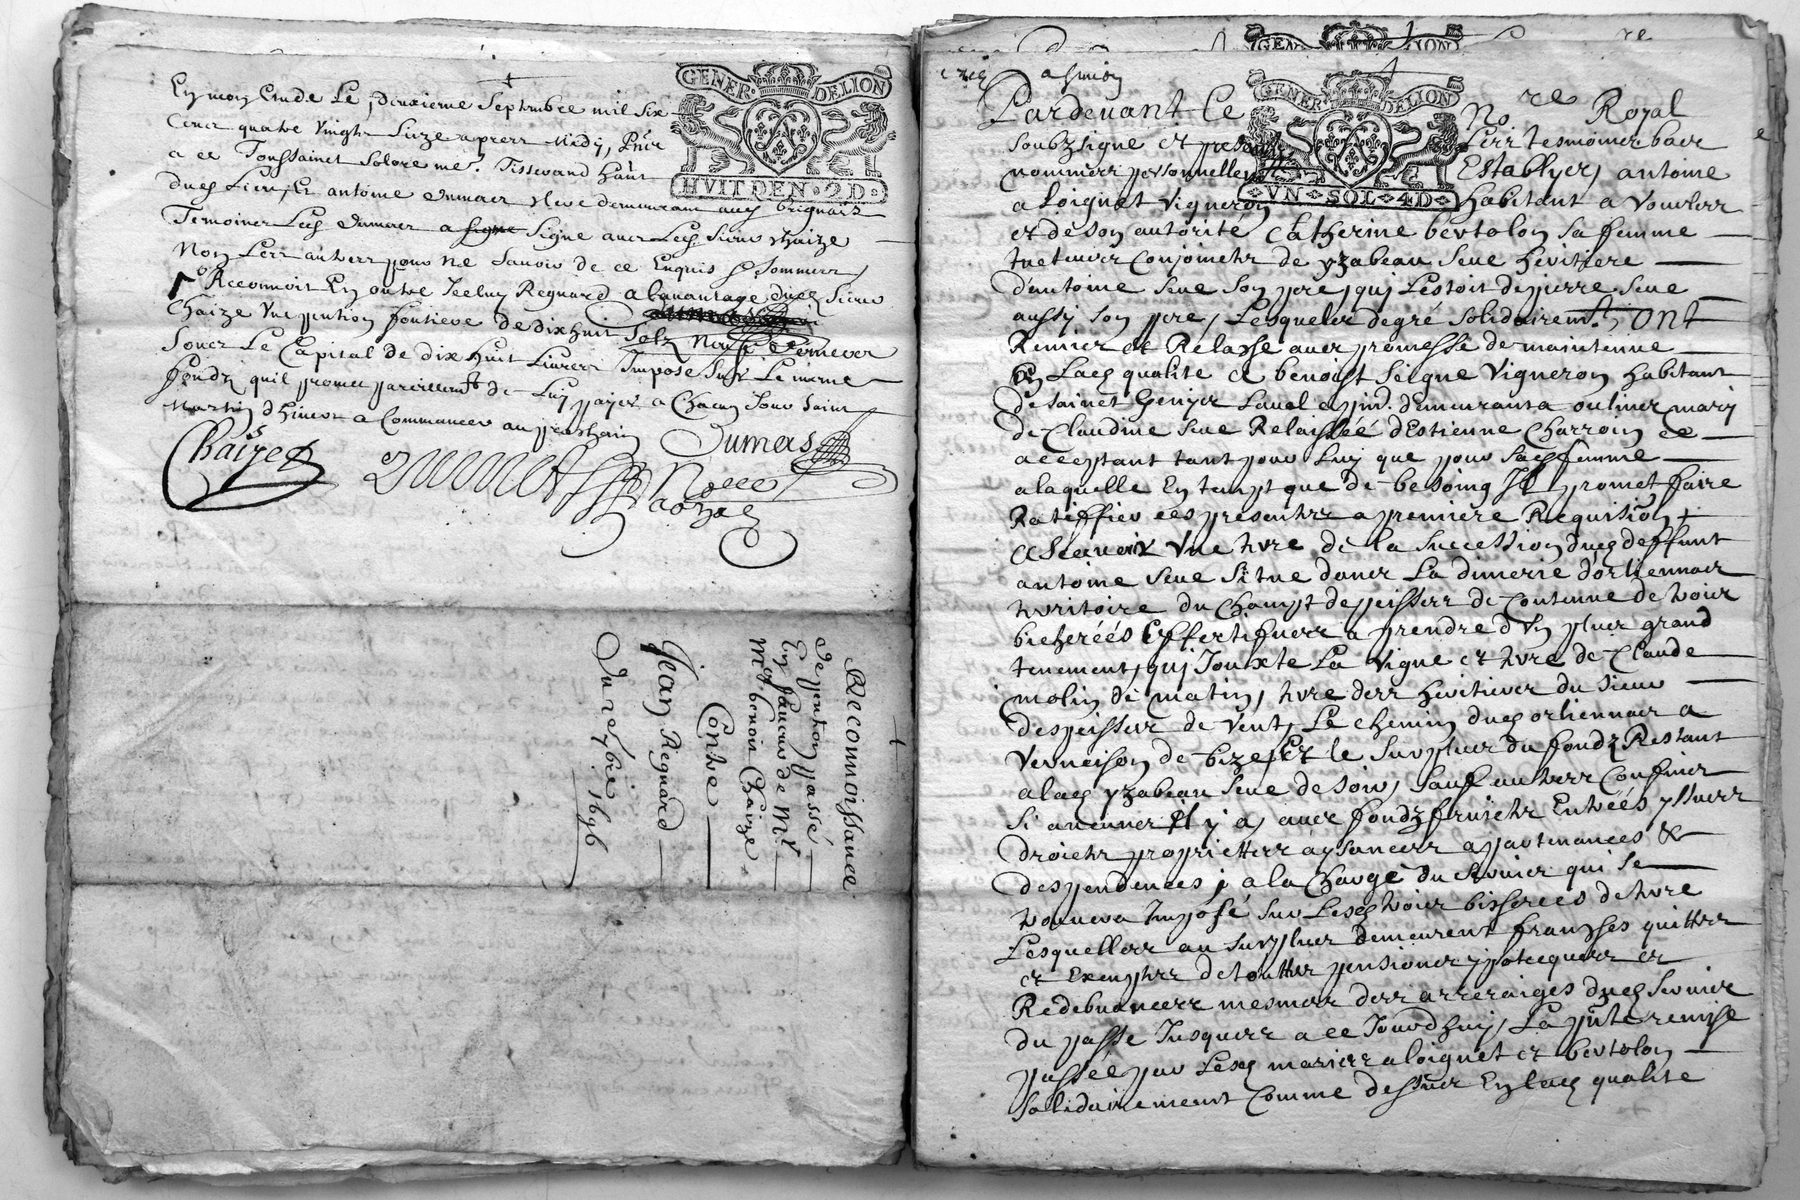 GENER. DELION
HVIT DEN. 2 D.
En mon Etude Le deuxieme Septembre mil six
cent quatre vingt Seize apres Midy, Pnt
a ce Toussainct Tisserand
dud Lieu, Et antoine dumas demeurant aud brignais
Temoins Led dumas a signe Signe avec Led Sieur Chaize
Non Les autres pour ne Scavoir de ce Enquis & Sommes
Reconnoit En outre Icelluy Regnard a lavantage dud Sieur
Chaize Une pention fontiere de dix huit Solz Neuf deniers
Soub Le Capital de dix huit Livres Impose Sur Le mesme
fondz quil promet pareillemt de Luy payer a Chacun Jour Saint
Martin dhiver a Commancer au prochain
Chaize
Dumas
Reconnoissance
de pention passé
En faveur de Mr
Mre benoit Chaize
Contre
Jean Regnard
Du 2e 7bre 1696
GENER DELION
VN SOL 4 D
Pardevant Le Nore Royal
soubzsigne et presents Les tesmoins bas
nommes personnellemt Establyes, antoine
aloignet Vigneron habitant a Vourles
et de son autorité Catherine bertolon sa femme
yzabeau Seve heritiere
d'antoine Seve Son pere, quj Lestoit de pierre Seve
aussy son pere, Lesquels de gré solidairemt, ont
Remis et Relasse avec promesse de maintenue
En Lad qualite a benoist Seigne Vigneron habitant
de sainct Genys Laval demeurant a oulins mary
de Claudine Seve Relaissée d'Estienne Charron
acceptant tant pour Luy que pour Sad femme
a laquelle En tempt que de besoing Il promet faire
Ratiffier ces presentes a premiere Requisition
A Scavoir Une terre de la Succession dud deffunt
antoine Seve Situe dans La dimerie dorliennas
territoire du Champt de peisses de Contenue de trois
bicherées a prendre d'Un plus grand
tenement, quj Jouxte La vigne et terre de Claude
molin de matin, terre des heritiers du Sieur
despeisses de vent, Le chemin dud orliennas a
Verneison de bize, Et le Surplus du fondz Restant
a lad yzabeau Seve de soir, Sauf autres Confins
Si aucuns Il y a, avec fondz fruicts Entrées yssues
droicts proprietes aysances apartenances &
despendences; a la Charge du Servis qui se
trouvera Imposé sur Lesd trois bisserees de terre
Lesquelles au Surplus demeurent franches quittes
et Exemptes de touttes pensions ypotecques et
Redebvances mesmes des arreraiges dud Servis
du passe Jusques a ce Jourdhuy, La pnte remise
passée par Lesd maries aloignet et bertolon
solidairement Comme dessus En lad qualite